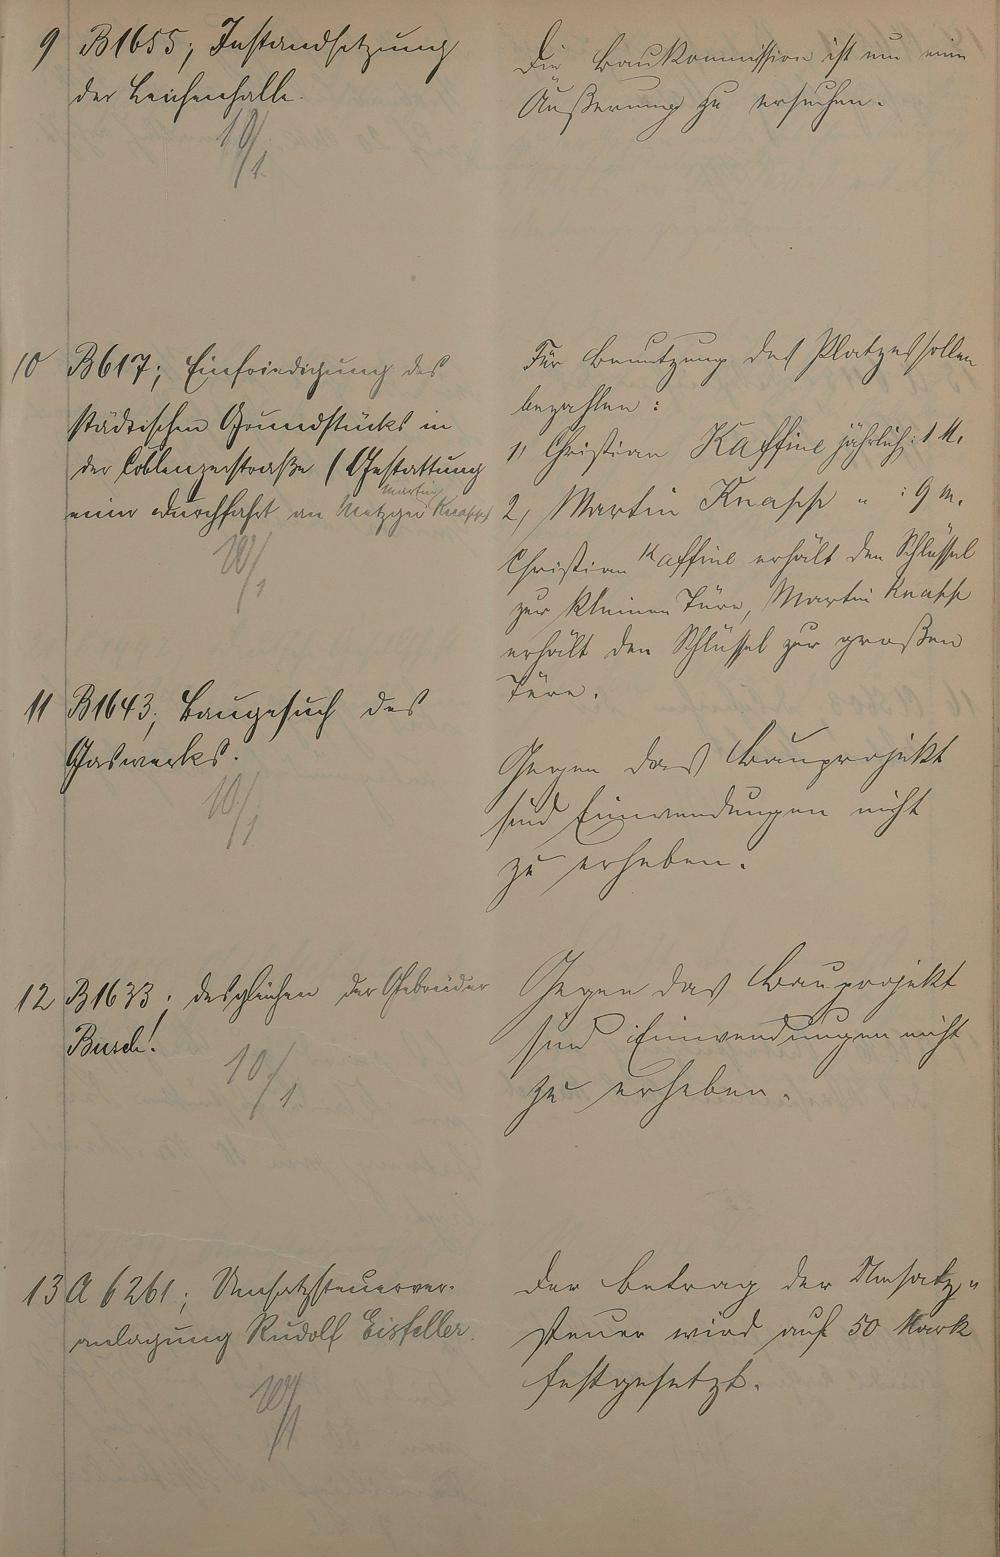 9 B1655; Instandsetzung
der Leichenhalle.
10/1.
Die Baukommission ist um eine
Äußerung zu ersuchen.
10 B617; Einfriedigung des
städtischen Grundstücks in
der Coblenzerstraße (Gestattung
Martin
einer Durchfahrt an Metzger Knapp)
10/1
Für Benutzung des Platzes sollen
bezahlen:
1, Christian Kaffine jährlich: 1 M.
2, Martin Knapp " : 9 M.
Christian Kaffine erhält den Schlüssel
zur kleinen Türe, Martin Knapp
erhält den Schlüssel zur großen
Türe.
11 B1643; Baugesuch des
Gaswerks.
10/1
Gegen das Bauprojekt
sind Einwendungen nicht
zu erheben.
12 B1633; desgleichen der Gebrüder
Busch!
10/1
Gegen das Bauprojekt
sind Einwendungen nicht
zu erheben.
13 A 6261; Umsatzsteuerver-
anlagung Rudolf Eisfeller.
10/1
Der Betrag der Umsatz-
steuer wird auf 50 Mark
festgesetzt.